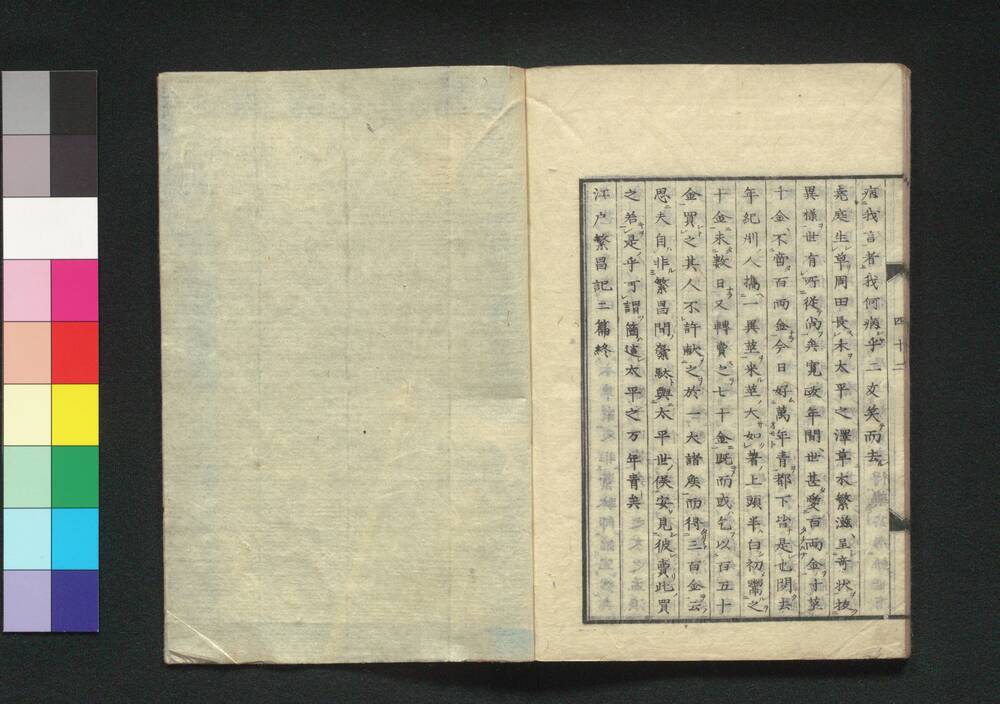 四十二
痛我言者我何病乎二文笑而去
堯庭生草周田長禾太平之澤草木繁滋呈奇状抜
異様世有所從尚矣寛政年間世甚愛百両金寸莖
十金不啻百両金今日好萬年青都下皆是也聞去
年紀州人携一異莖来莖大如箸上頭半白初鬻之
十金未数日又轉賣之七十金既而或乞以百五十
金買之其人不許献之於一大諸矦而得三百金云
思夫自非繁昌間繁駄與太平世矦安見彼賣此買
之若是乎可謂箇這太平之万年青矣
江戸繁昌記二篇終